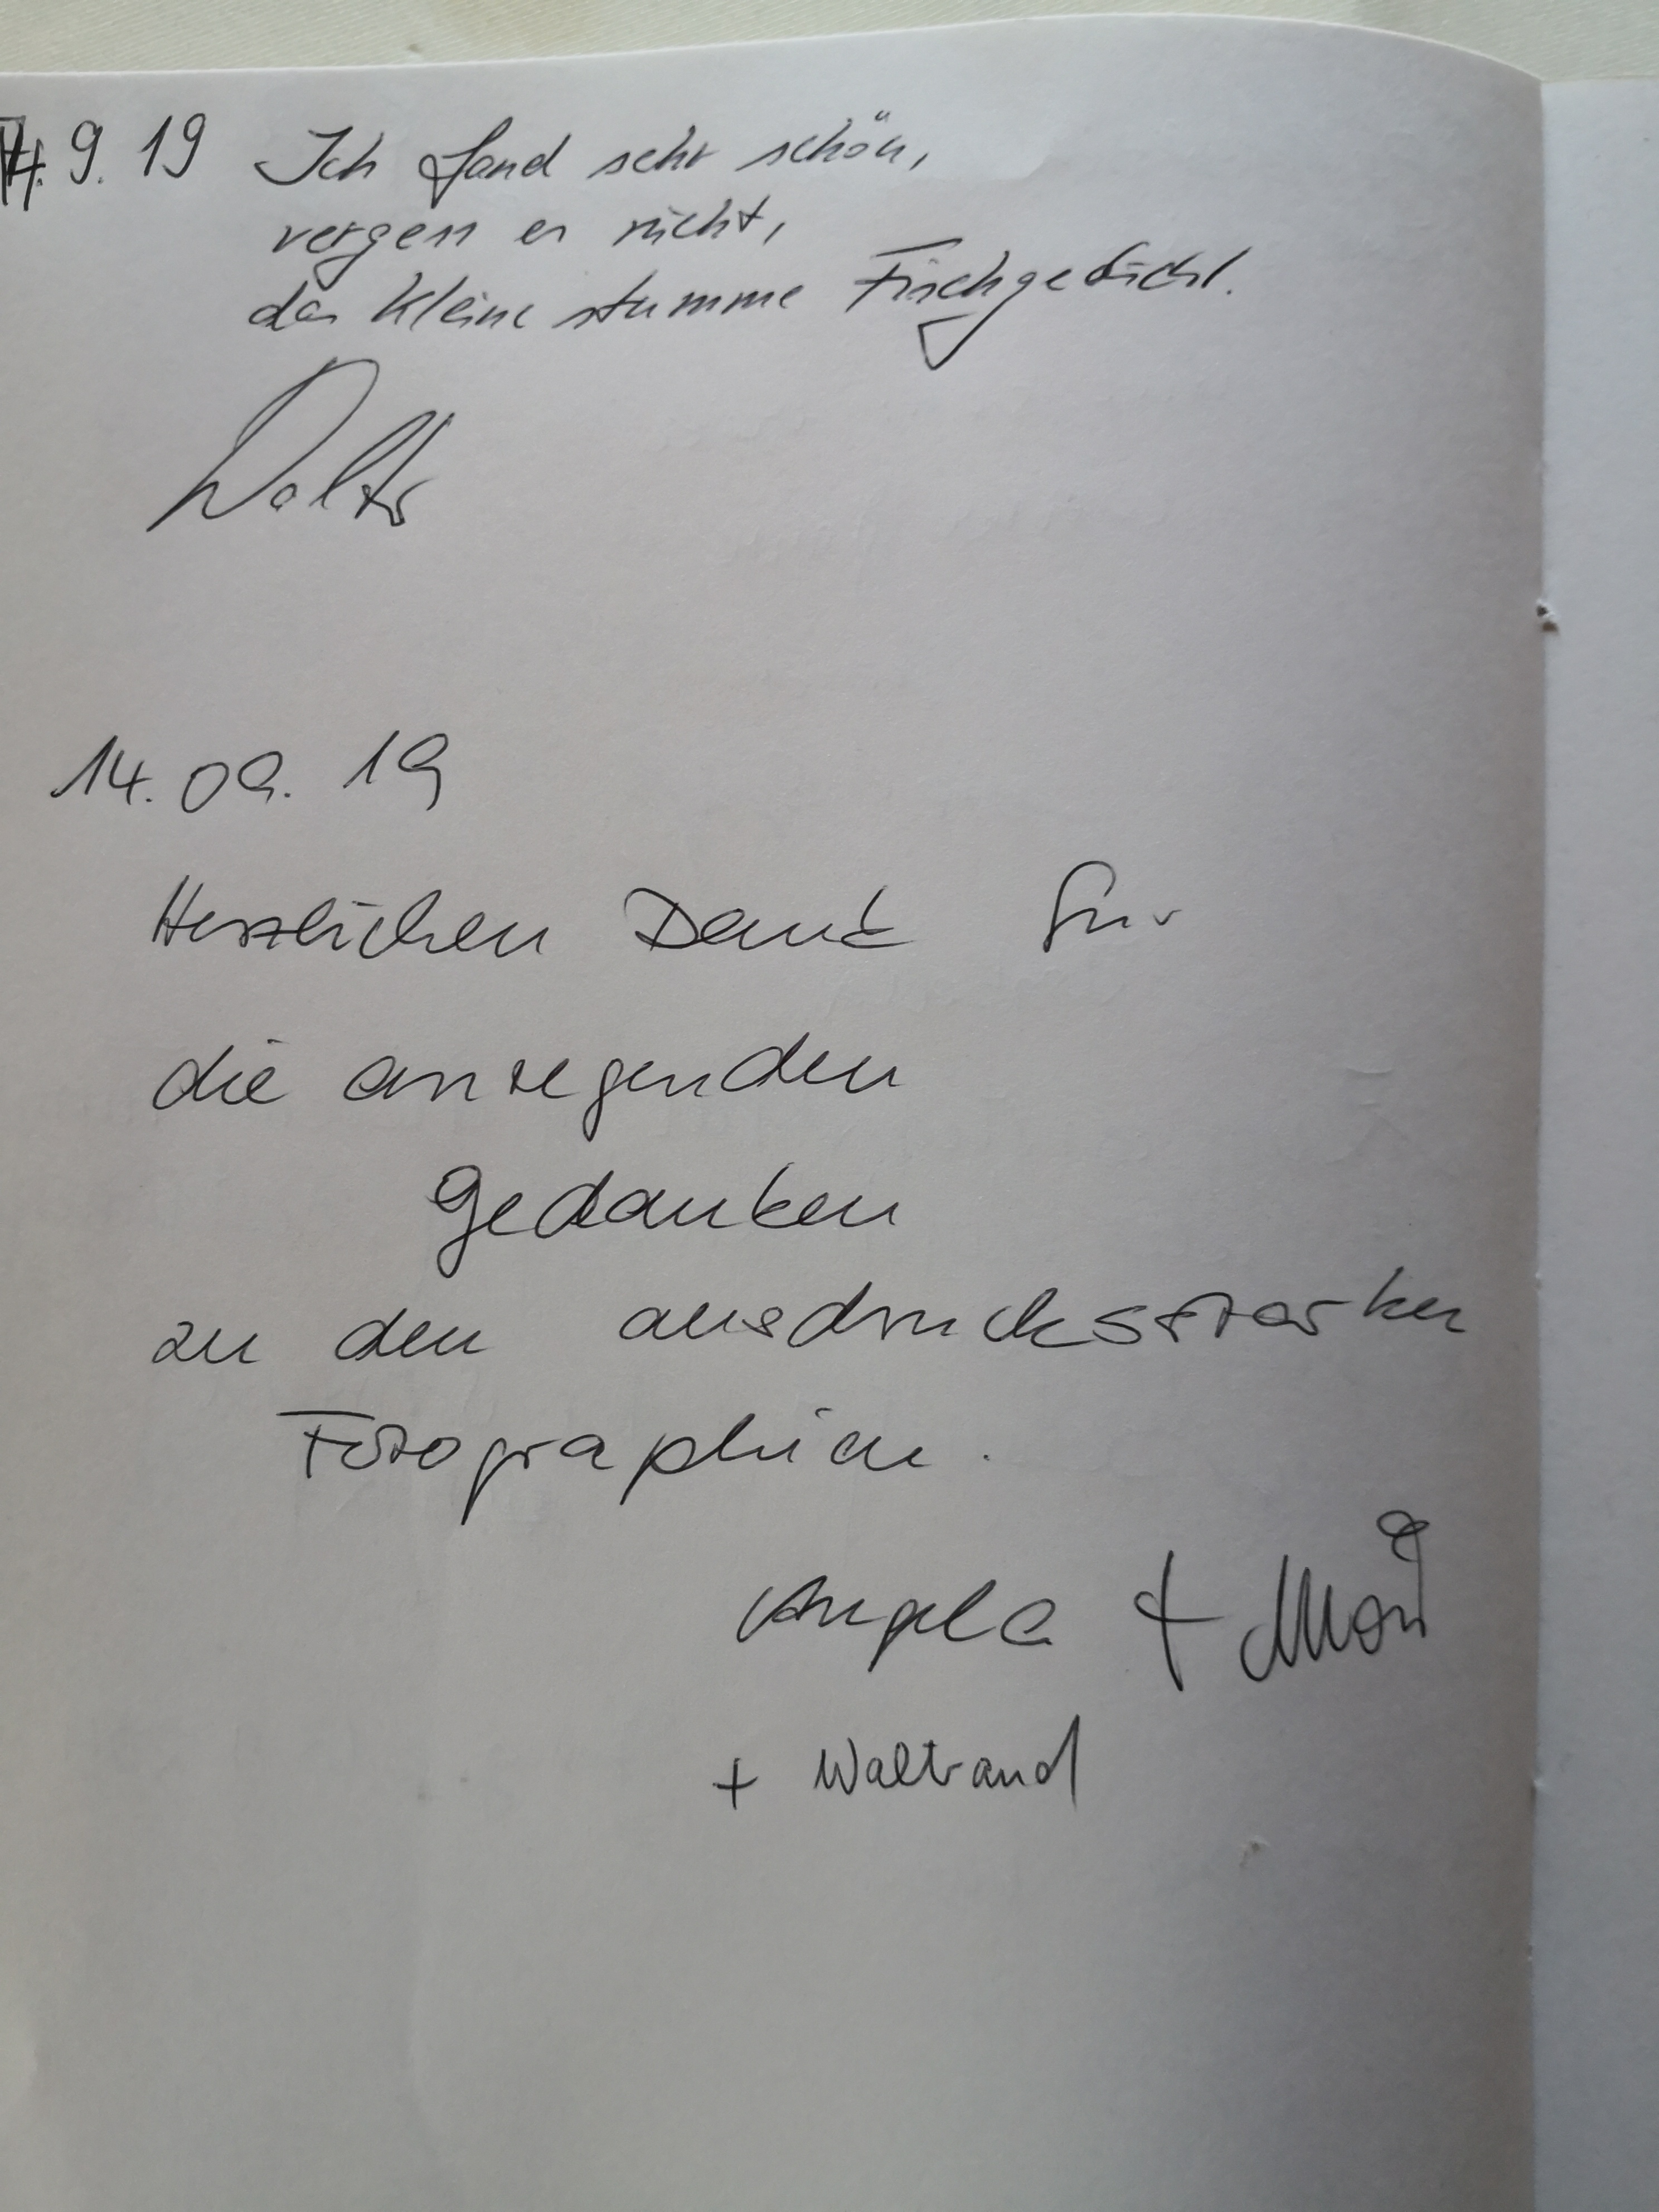 14. 9. 19 Ich fand sehr schön,
vergess es nicht,
das kleine stumme Fischgedicht.
Walter
14. 09. 19
Herzlichen Dank für
die anregenden
Gedanken
zu den ausdrucksstarken
Fotographien.
Angela +
+ Waltraud